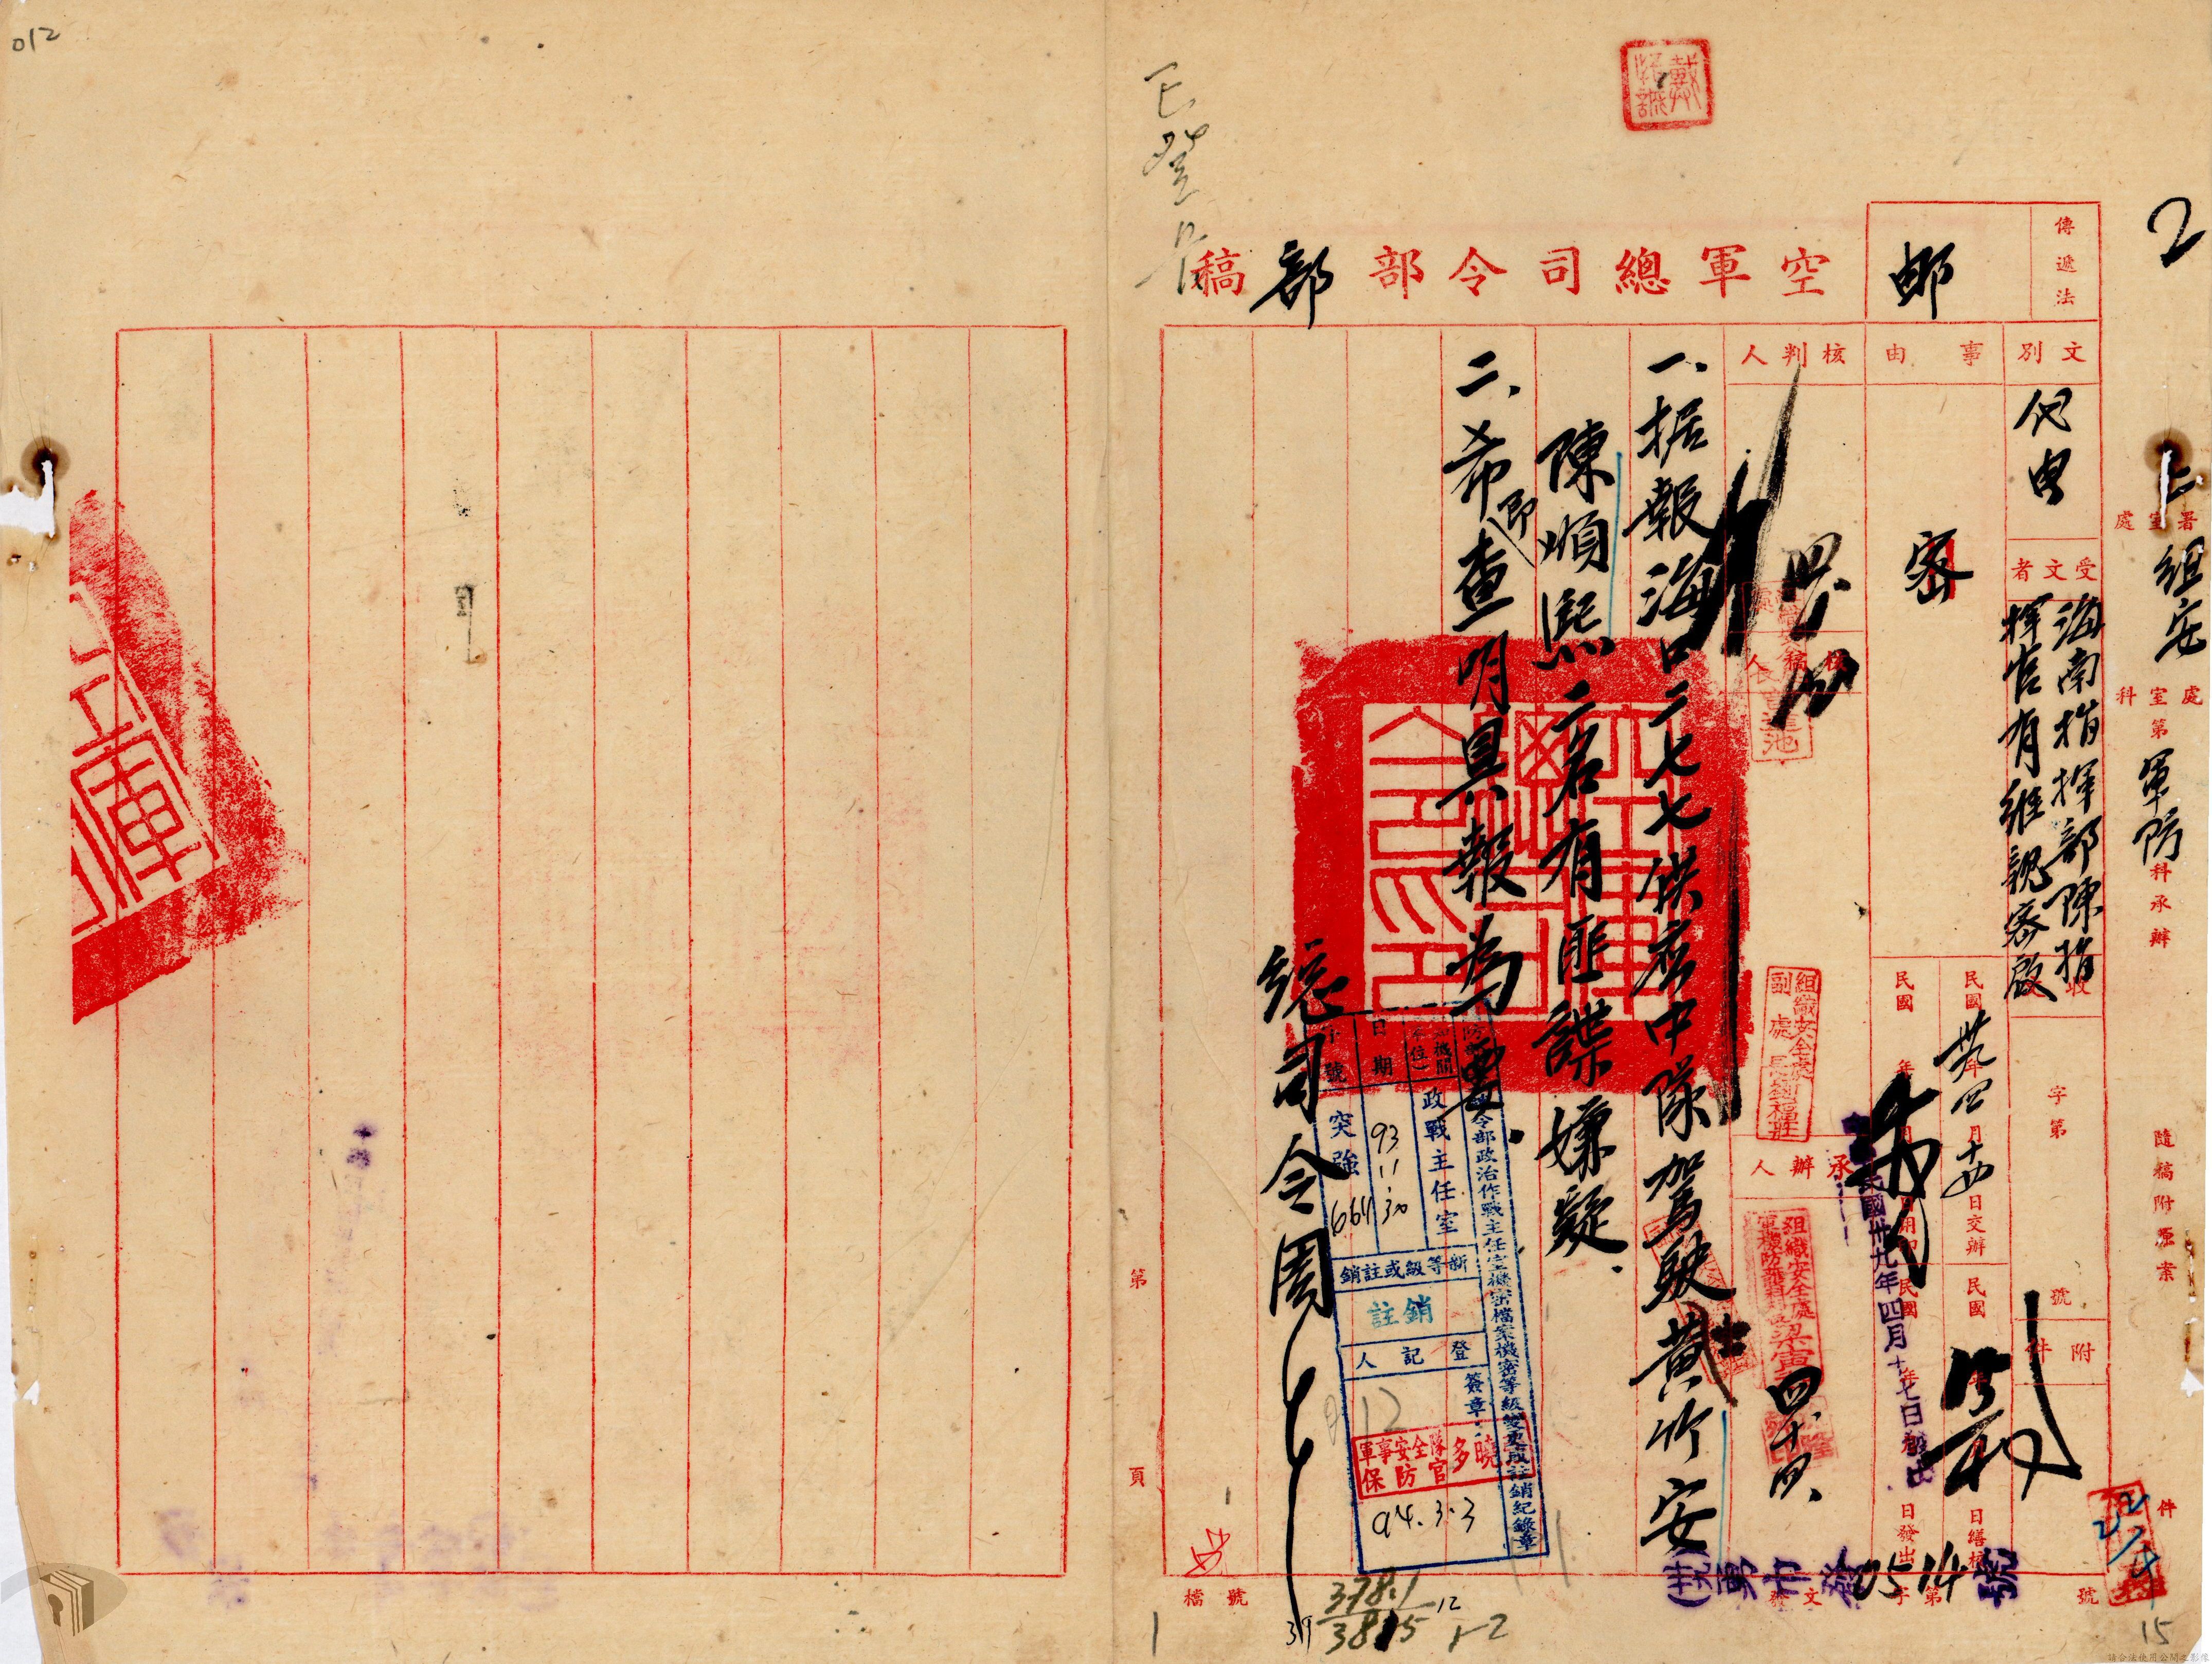 012
2
已登片
戴
傳遞法
郵
空軍總司令部
部
稿
署
處室
組安
處
室
科
第
軍防
科承辦
隨稿附原案
件
文別
代电
受文者
海南指揮部陳指
揮官有維親密啟
收
字第
號
附件
事由
密
民國卅九年四月十四日交辦
民國
日繕校
民國
年
月
日用印
民國
年
日發出
民國卅九年四月十七日發出
核判人
核稿人
承辦人
組織安全處
副處長劉福莊
組織安全處
四.十四.
一、据報海口二七七供应中隊駕駛黃竹安
陳順熙二名有匪諜嫌疑.
二、希即查明具報為要.
總司令周
令部政治作戰主任室機密檔案機密等級變更或註銷紀錄章
政戰主任室
日期
93.11.30
字號
突強
664
新等級或註銷
註銷
登記人
簽章
軍事安全隊
保防官
94.3.3
12
發文
字第
0514
號
號
檔號
378.1
3815
12
39
第
頁
1
15
請合法使用公開之影像